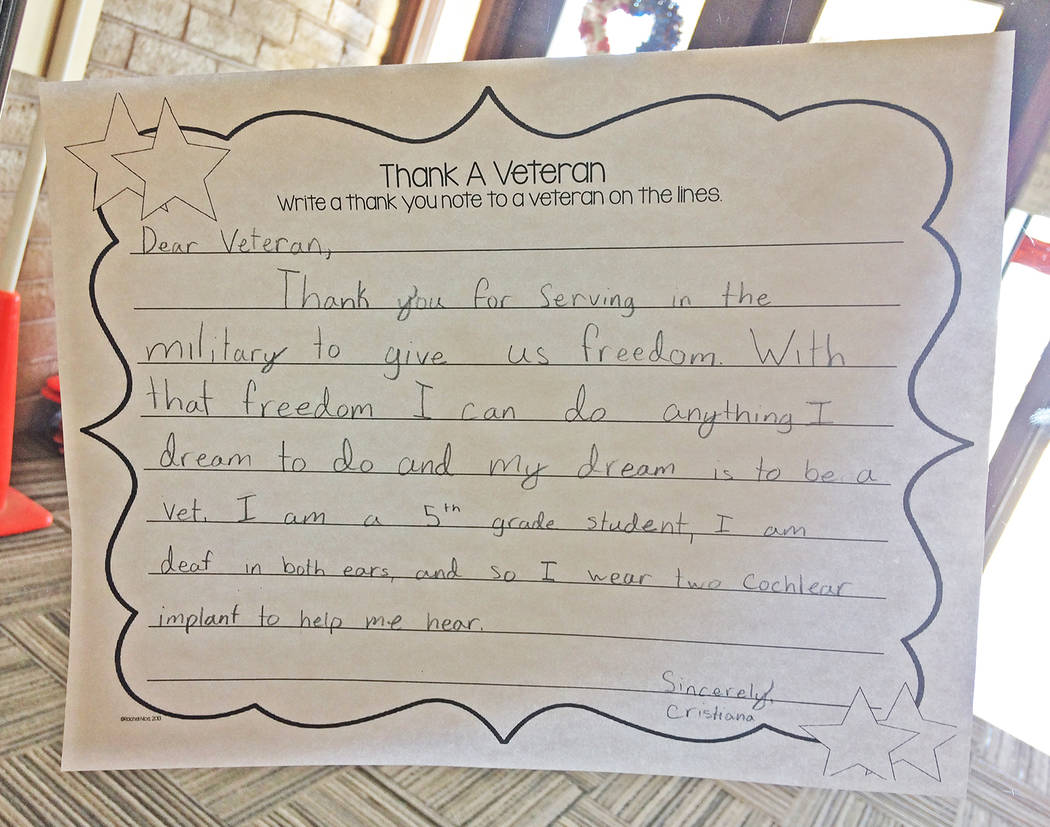 Thank A Veteran
Write a thank you note to a veteran on the lines.
Dear Veteran,
Thank you for serving in the
military to give us freedom. With
that freedom I can do anything I
dream to do and my dream is to be a
vet. I am a 5th grade student, I am
deaf in both ears, and so I wear two cochlear
implant to help me hear.
Sincerely,
Cristiana